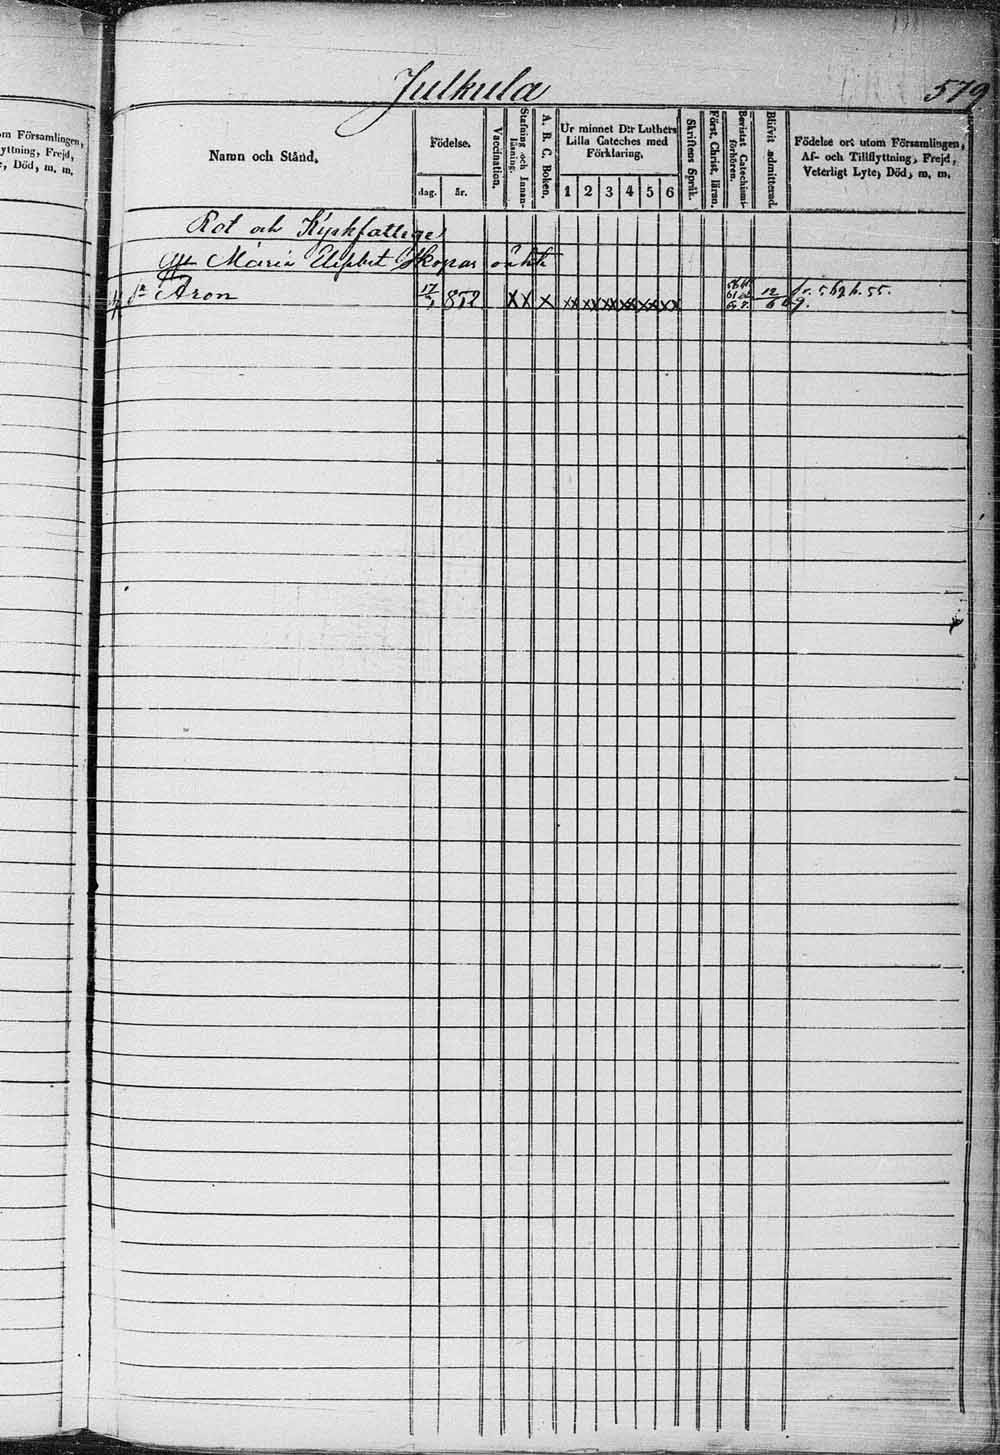 Julkula
579
m Församlingen,
yttning, Frejd,
, Död, m. m.
Namn och Stånd,
Födelse.
dag.
år.
Vaccination.
Stafning och Innan-
läsning.
A. B. C. Boken.
Ur minnet D:r Luthers
Lilla Cateches med
Förklaring.
1 2 3 4 5 6
Skriftens Språk.
Först. Christ. läran.
Bevistat Catechismi-
förhören.
Blifvit admitterad.
Födelse ort utom Församlingen,
Af- och Tillflyttning, Frejd,
Veterligt Lyte, Död, m. m.
Rot och Kyrkfattige
Maria Elisbet Skopas oäkta
Sr Aron 17/1 852 x x x xx xx xx xx xx xx 12/6 69. fr. 562 h. 55.